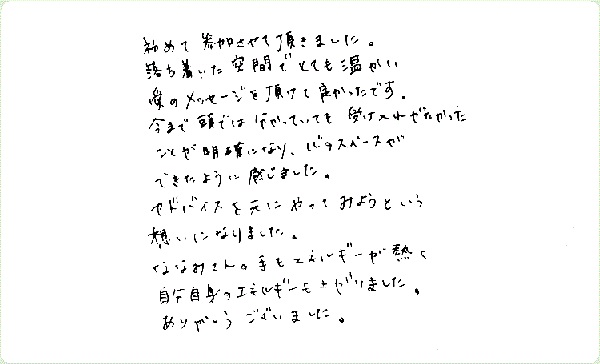 初めて参加させて頂きました。
落ち着いた空間でとても温かい
愛のメッセージを頂けて良かったです。
今まで頭では分かっていても受け入れがたかった
ことが明確になり、心のスペースが
できたように感じました。
アドバイスを元にやってみようという
想いになりました。
ななみさんの手もエネルギーが熱く
自分自身のエネルギーも上がりました。
ありがとうございました。